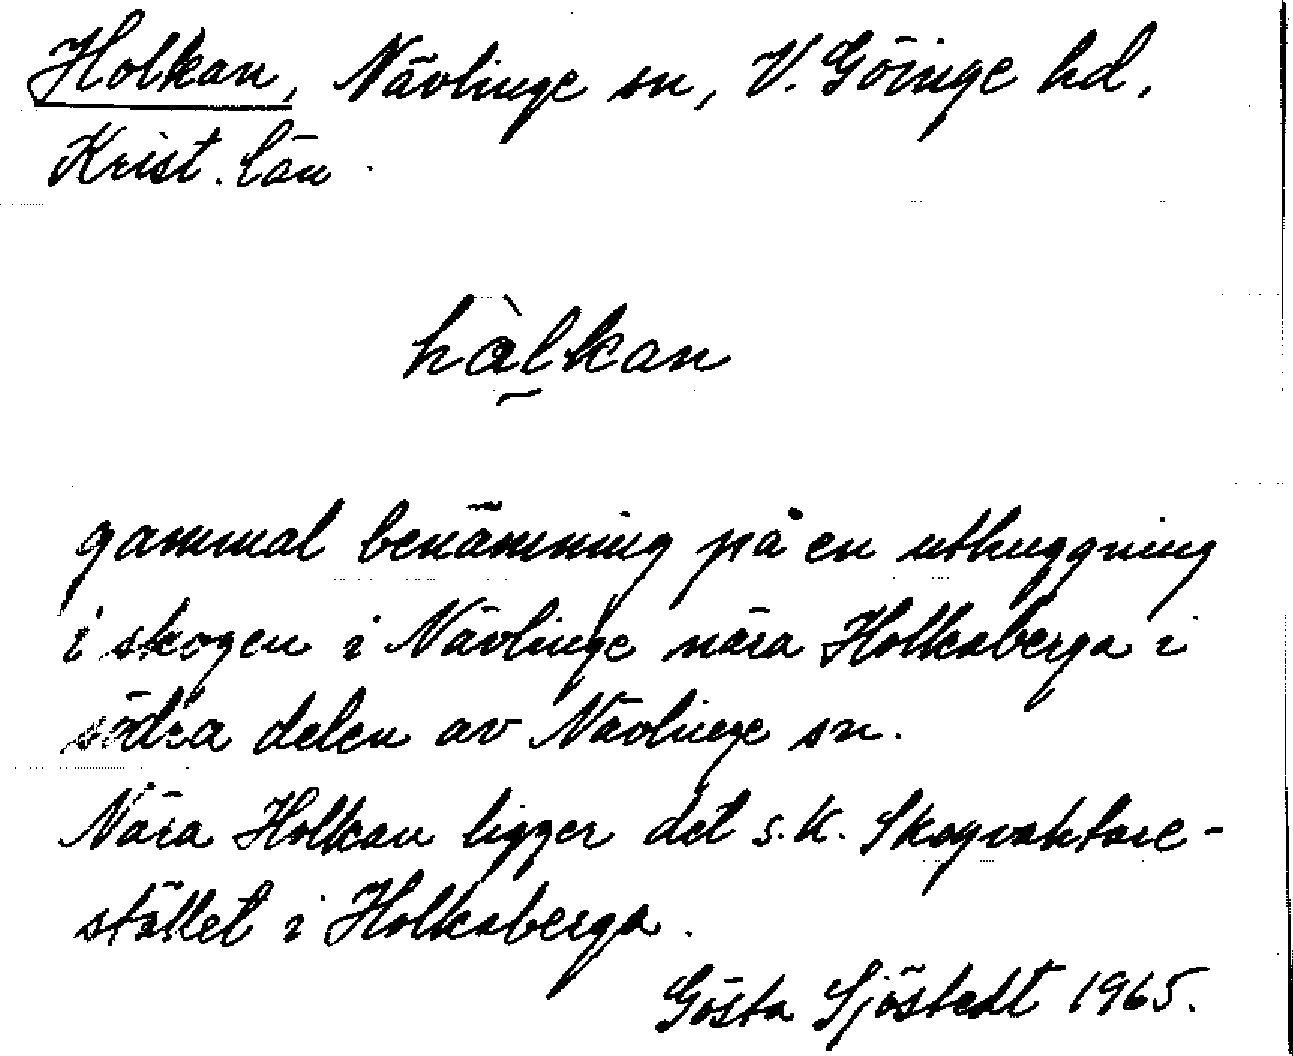 Holkan, Nävlinge sn, V. Göinge hd,
Krist. län
hàlkan
gammal benämning på en uthuggning
i skogen i Nävlinge nära Holkaberga i
södra delen av Nävlinge sn.
Nära Holkan ligger det s.k. Skogvaktare-
stället i Holkaberga.
Gösta Sjöstedt 1965.